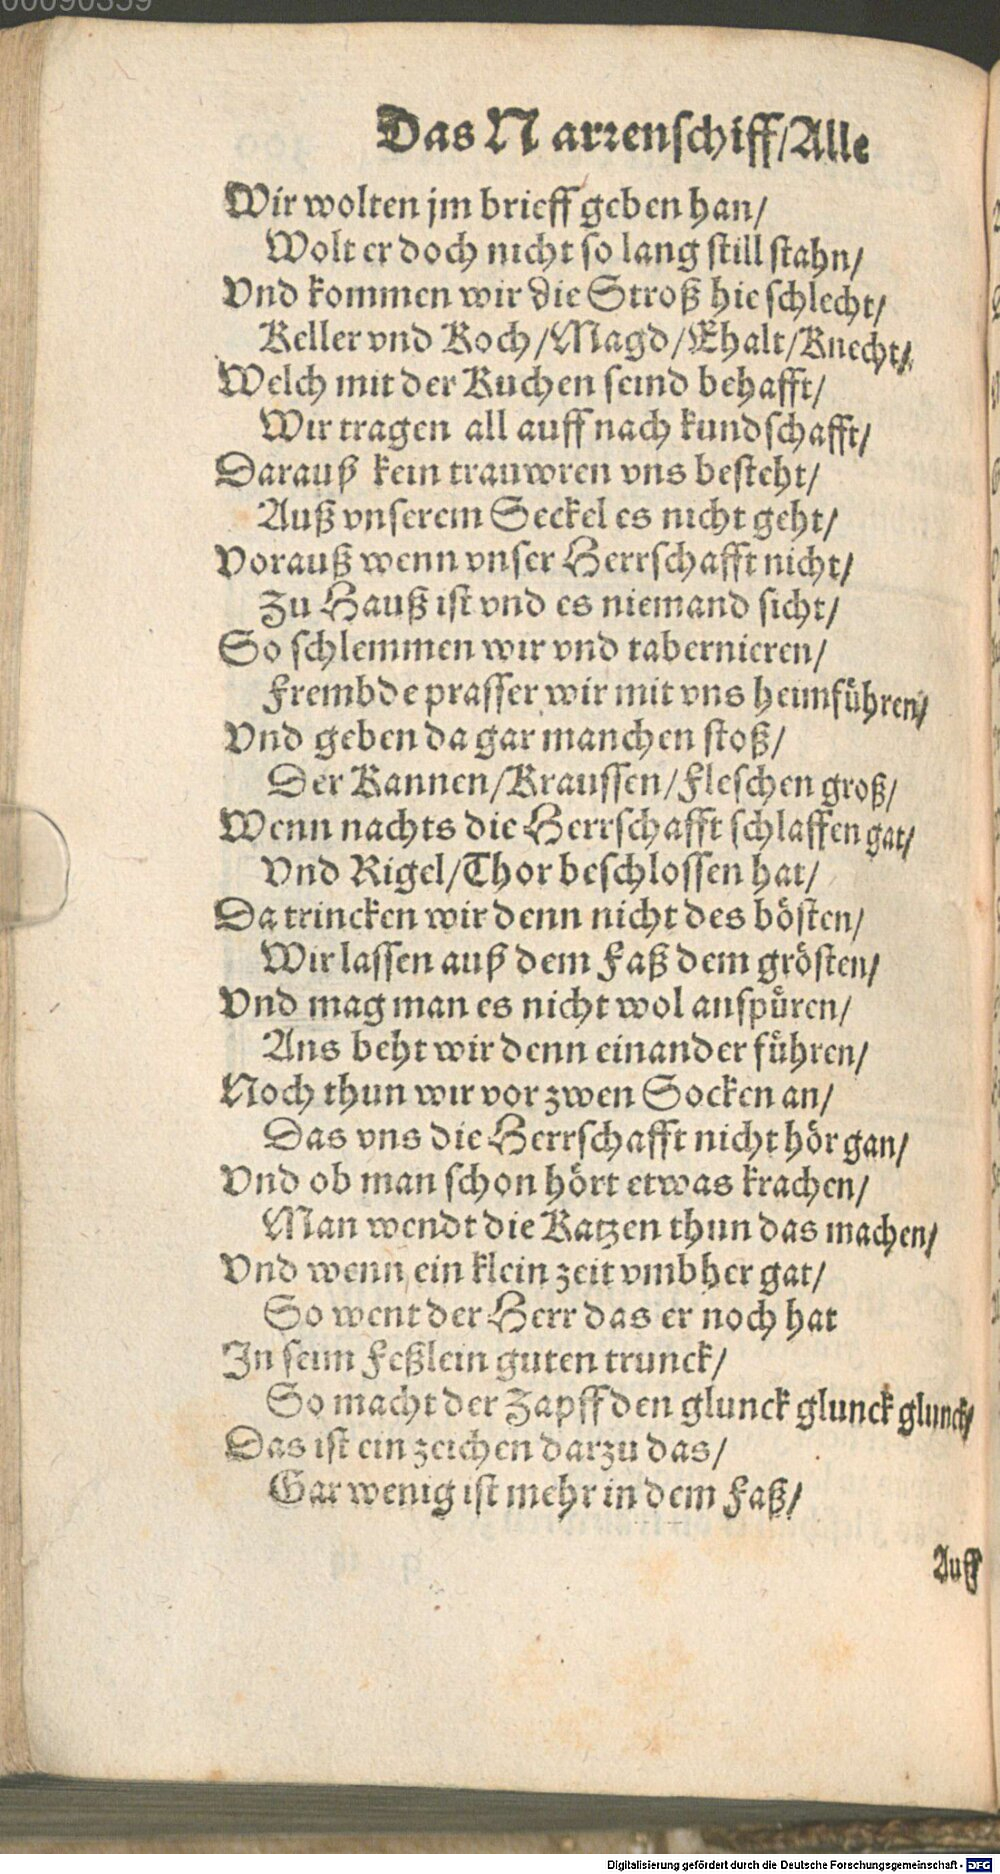 00090359
Das Narrenschiff/Alle
Wir wolten jm brieff geben han/
Wolt er doch nicht so lang still stahn/
Vnd kommen wir die Stroß hie schlecht/
Keller vnd Koch/Magd/Ehalt/Knecht/
Welch mit der Kuchen seind behafft/
Wir tragen all auff nach kundschafft/
Darauß kein trauwren vns besteht/
Auß vnserem Seckel es nicht geht/
Vorauß wenn vnser Herrschafft nicht/
Zu Hauß ist vnd es niemand sicht/
So schlemmen wir vnd tabernieren/
Frembde prasser wir mit vns heimführen/
Vnd geben da gar manchen stoß/
Der Kannen/Kraussen/Fleschen groß/
Wenn nachts die Herrschafft schlaffen gat/
Vnd Rigel/Thor beschlossen hat/
Da trincken wir denn nicht des bösten/
Wir lassen auß dem Faß dem grösten/
Vnd mag man es nicht wol anspüren/
Ans beht wir denn einander führen/
Noch thun wir vor zwen Socken an/
Das vns die Herrschafft nicht hör gan/
Vnd ob man schon hört etwas krachen/
Man wendt die Katzen thun das machen/
Vnd wenn ein klein zeit vmbher gat/
So went der Herr das er noch hat
In seim Feßlein guten trunck/
So macht der Zapff den glunck glunck glunck/
Das ist ein zeichen darzu das/
Gar wenig ist mehr in dem Faß/
Auff
Digitalisierung gefördert durch die Deutsche Forschungsgemeinschaft - DFG